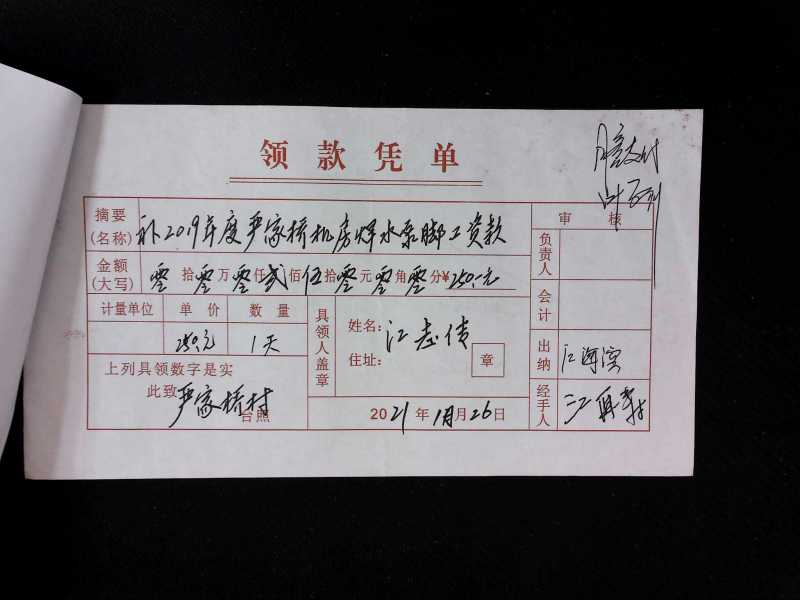 领款凭单
摘要(名称) 补2019年度严家桥机房焊水泵脚工资款
审 核
金额(大写) 零拾零万零仟贰佰伍拾零元零角零分¥250.-元
负责人
会计
计量单位 单价 数量
250元 1天
具领人盖章
姓名: 江志传
住址:
章
出纳 江海滨
上列具领数字是实
此致 严家桥村
台照
2021年1月26日
经手人 江